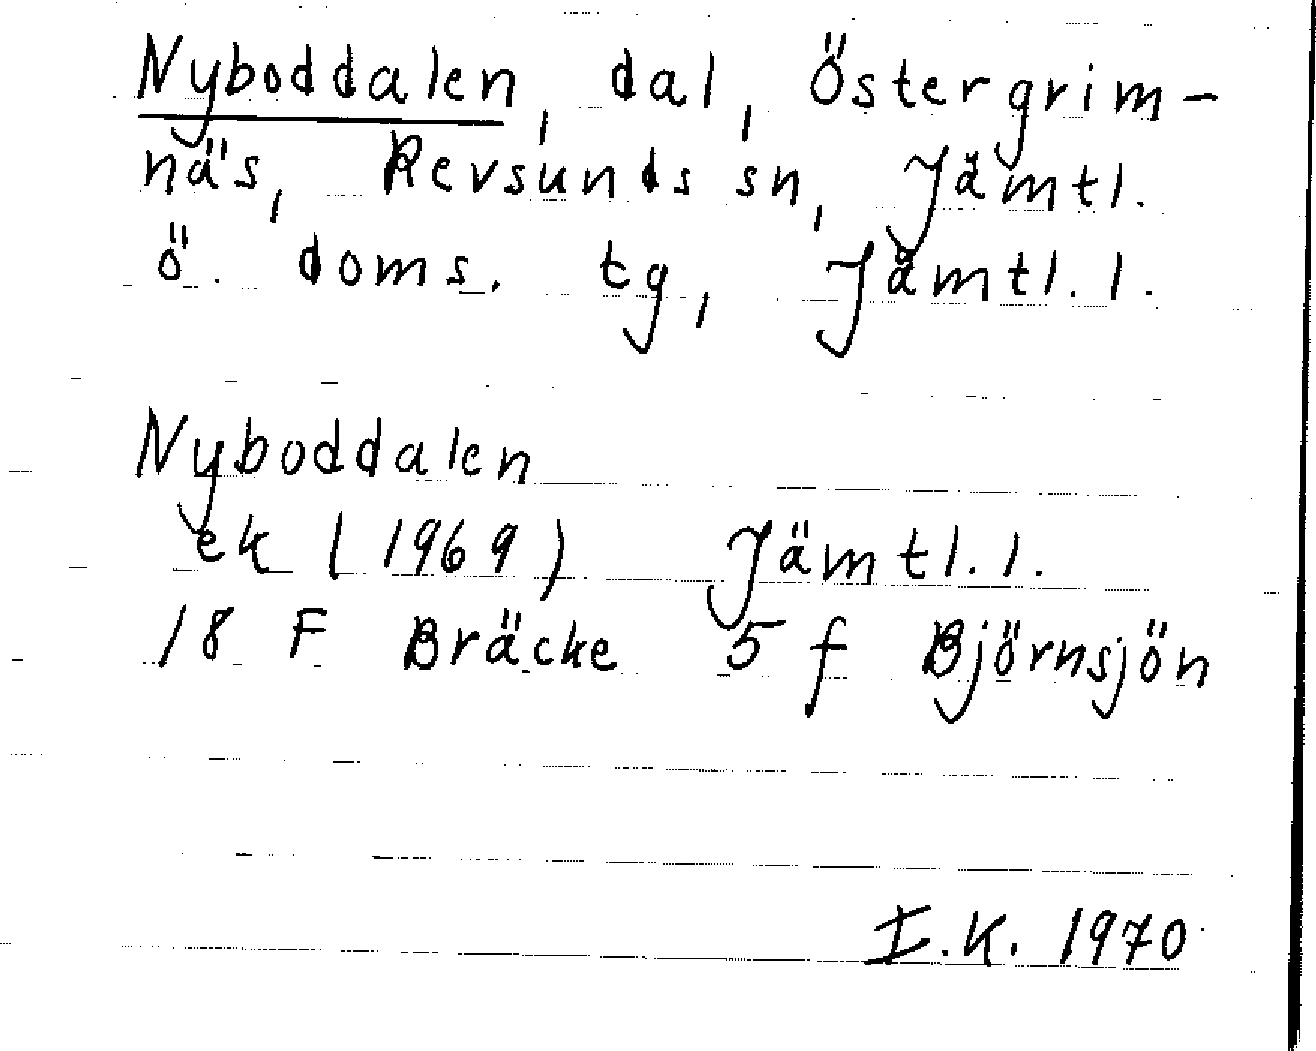 Nyboddalen, dal, Östergrim-
näs, Revsunds sn, Jämtl.
ö. doms. tg, Jämtl. l.
Nyboddalen
ek (1969) Jämtl. l.
18 F Bräcke 5 f Björnsjön
I.K. 1970